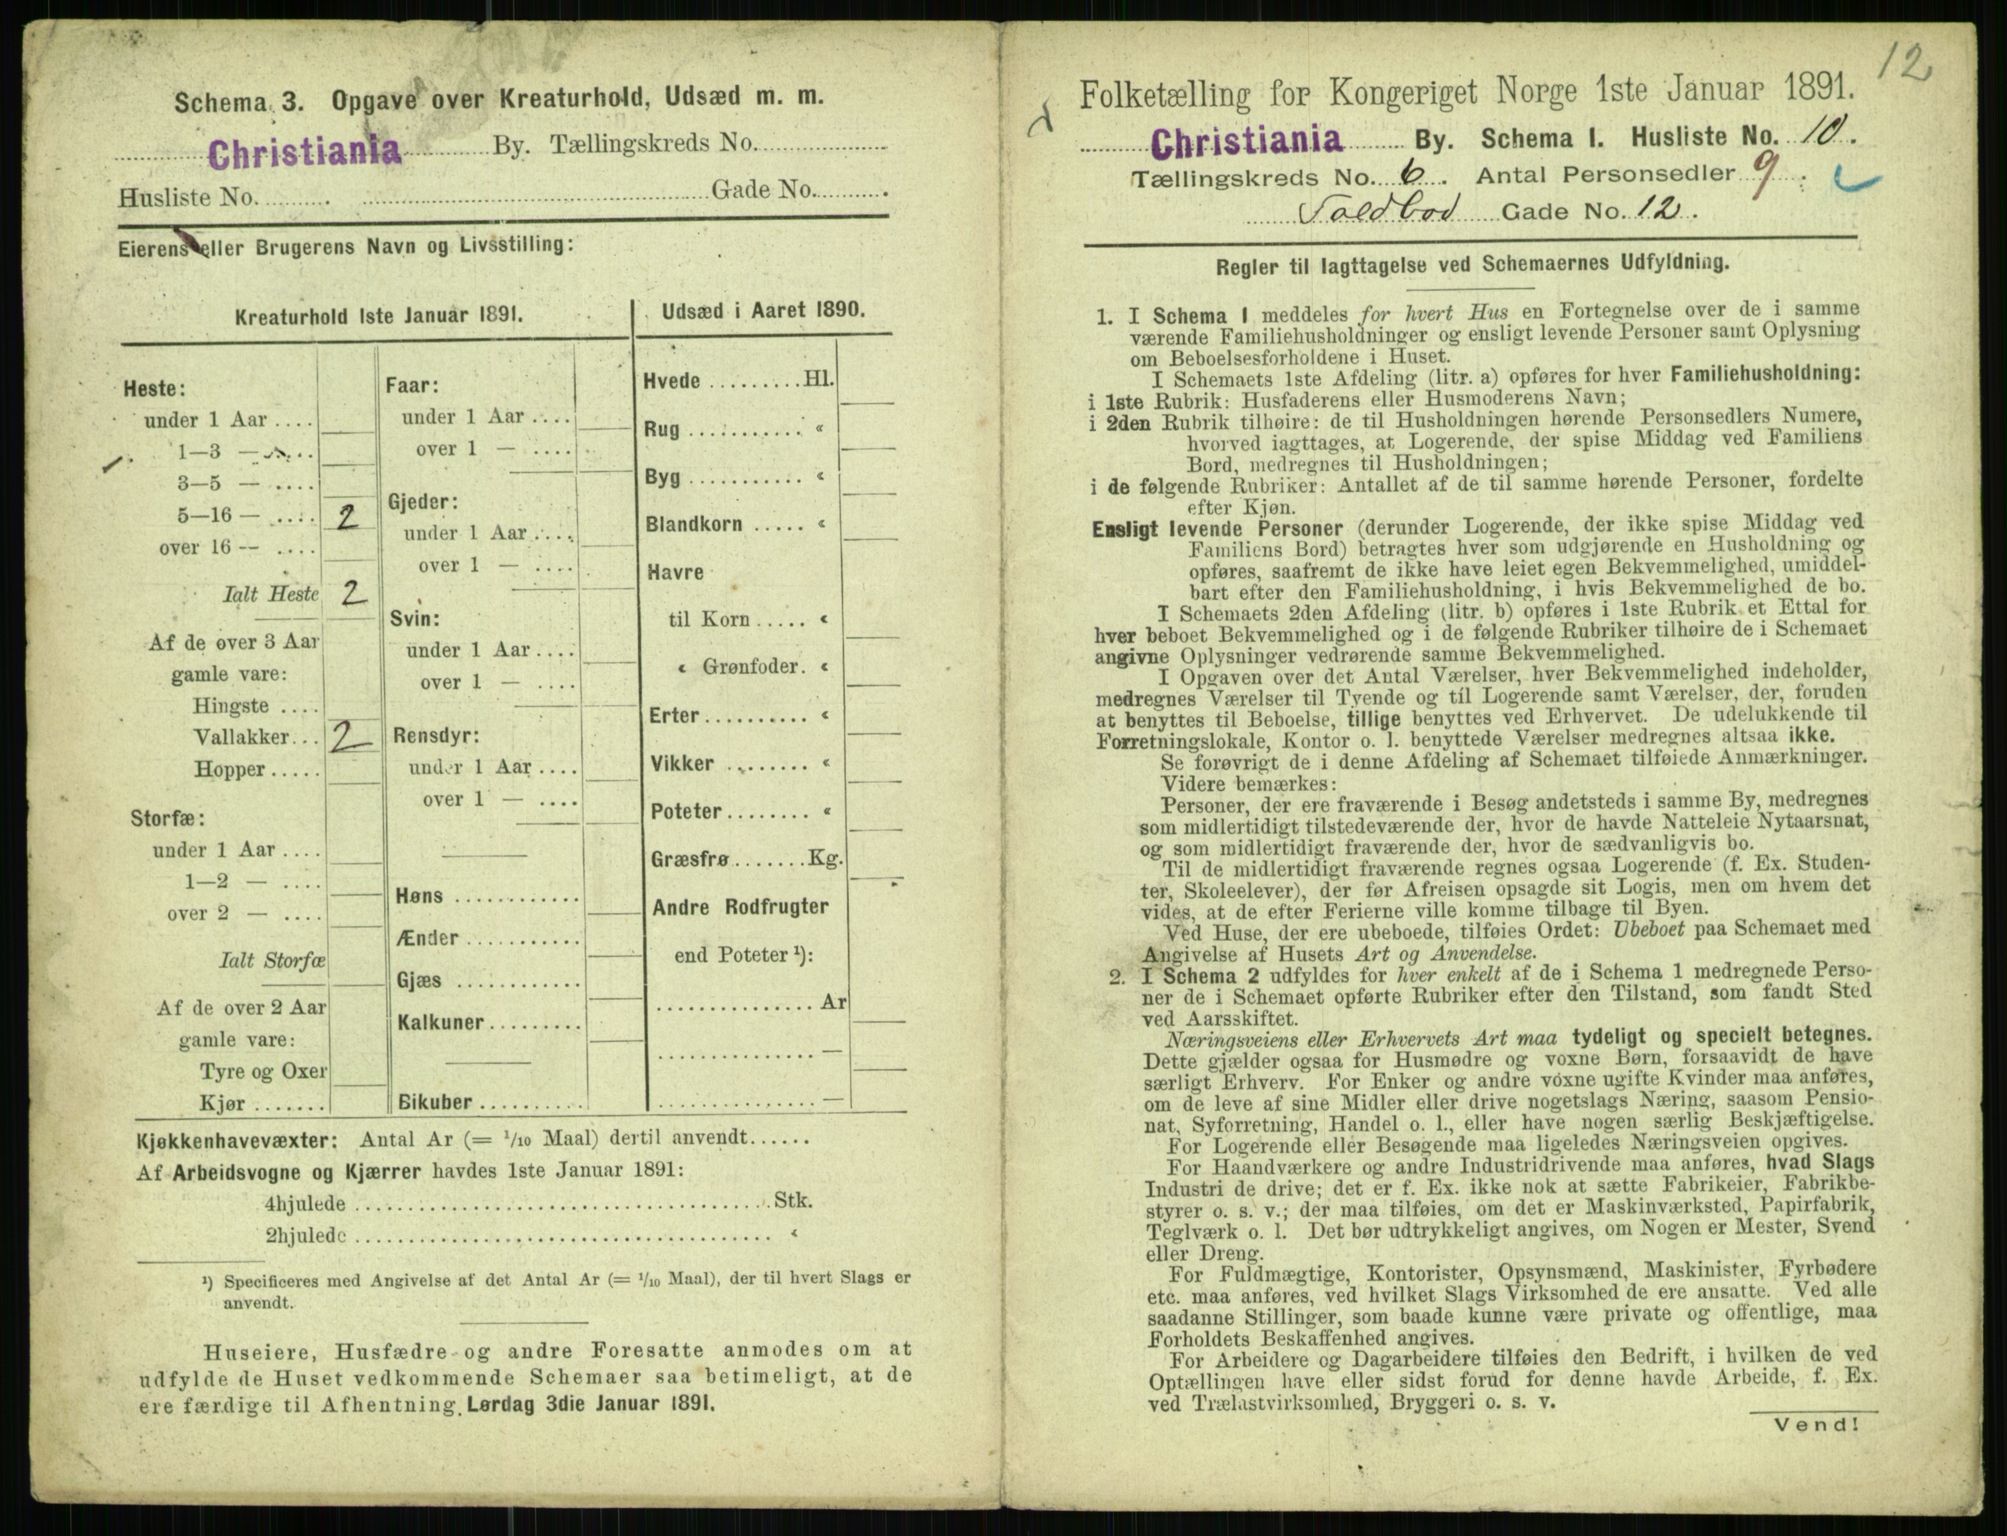 Schema 3. Opgave over Kreaturhold, Udsæd m. m.
Christiania By. Tællingskreds No.
Husliste No. Gade No.
Eierens eller Brugerens Navn og Livsstilling:
Kreaturhold 1ste Januar 1891.
Heste:
under 1 Aar
1—3 —
3—5 —
5—16 — 2
over 16 —
Ialt Heste 2
Af de over 3 Aar
gamle vare:
Hingste
Vallakker 2
Hopper
Storfæ:
under 1 Aar
1—2 —
over 2 —
Ialt Storfæ
Af de over 2 Aar
gamle vare:
Tyre og Oxer
Kjør
Faar:
under 1 Aar
over 1 —
Gjeder:
under 1 Aar
over 1 —
Svin:
under 1 Aar
over 1 —
Rensdyr:
under 1 Aar
over 1 —
Høns
Ænder
Gjæs
Kalkuner
Bikuber
Udsæd i Aaret 1890.
Hvede Hl.
Rug "
Byg "
Blandkorn "
Havre
til Korn "
" Grønfoder "
Erter "
Vikker "
Poteter "
Græsfrø Kg.
Andre Rodfrugter
end Poteter ¹):
Ar
—
—
Kjøkkenhavevæxter: Antal Ar (= 1/10 Maal) dertil anvendt
Af Arbeidsvogne og Kjærrer havdes 1ste Januar 1891:
4hjulede Stk.
2hjulede "
¹) Specificeres med Angivelse af det Antal Ar (= 1/10 Maal), der til hvert Slags er
anvendt.
Huseiere, Husfædre og andre Foresatte anmodes om at
udfylde de Huset vedkommende Schemaer saa betimeligt, at de
ere færdige til Afhentning Lørdag 3die Januar 1891.
12
Folketælling for Kongeriget Norge 1ste Januar 1891.
Christiania By. Schema I. Husliste No. 10.
Tællingskreds No. 6. Antal Personsedler 9.
Toldbod Gade No. 12.
Regler til Iagttagelse ved Schemaernes Udfyldning.
1. I Schema 1 meddeles for hvert Hus en Fortegnelse over de i samme
værende Familiehusholdninger og ensligt levende Personer samt Oplysning
om Beboelsesforholdene i Huset.
I Schemaets 1ste Afdeling (litr. a) opføres for hver Familiehusholdning:
i 1ste Rubrik: Husfaderens eller Husmoderens Navn;
i 2den Rubrik tilhøire: de til Husholdningen hørende Personsedlers Numere,
hvorved iagttages, at Logerende, der spise Middag ved Familiens
Bord, medregnes til Husholdningen;
i de følgende Rubriker: Antallet af de til samme hørende Personer, fordelte
efter Kjøn.
Ensligt levende Personer (derunder Logerende, der ikke spise Middag ved
Familiens Bord) betragtes hver som udgjørende en Husholdning og
opføres, saafremt de ikke have leiet egen Bekvemmelighed, umiddel-
bart efter den Familiehusholdning, i hvis Bekvemmelighed de bo.
I Schemaets 2den Afdeling (litr. b) opføres i 1ste Rubrik et Ettal for
hver beboet Bekvemmelighed og i de følgende Rubriker tilhøire de i Schemaet
angivne Oplysninger vedrørende samme Bekvemmelighed.
I Opgaven over det Antal Værelser, hver Bekvemmelighed indeholder,
medregnes Værelser til Tyende og til Logerende samt Værelser, der, foruden
at benyttes til Beboelse, tillige benyttes ved Erhvervet. De udelukkende til
Forretningslokale, Kontor o. l. benyttede Værelser medregnes altsaa ikke.
Se forøvrigt de i denne Afdeling af Schemaet tilføiede Anmærkninger.
Videre bemærkes:
Personer, der ere fraværende i Besøg andetsteds i samme By, medregnes
som midlertidigt tilstedeværende der, hvor de havde Natteleie Nytaarsnat,
og som midlertidigt fraværende der, hvor de sædvanligvis bo.
Til de midlertidigt fraværende regnes ogsaa Logerende (f. Ex. Studen-
ter, Skoleelever), der før Afreisen opsagde sit Logis, men om hvem det
vides, at de efter Ferierne ville komme tilbage til Byen.
Ved Huse, der ere ubeboede, tilføies Ordet: Ubeboet paa Schemaet med
Angivelse af Husets Art og Anvendelse.
2. I Schema 2 udfyldes for hver enkelt af de i Schema 1 medregnede Perso-
ner de i Schemaet opførte Rubriker efter den Tilstand, som fandt Sted
ved Aarsskiftet.
Næringsveiens eller Erhvervets Art maa tydeligt og specielt betegnes.
Dette gjælder ogsaa for Husmødre og voxne Børn, forsaavidt de have
særligt Erhverv. For Enker og andre voxne ugifte Kvinder maa anføres,
om de leve af sine Midler eller drive nogetslags Næring, saasom Pensio-
nat, Syforretning, Handel o. l., eller have nogen særlig Beskjæftigelse.
For Logerende eller Besøgende maa ligeledes Næringsveien opgives.
For Haandværkere og andre Industridrivende maa anføres, hvad Slags
Industri de drive; det er f. Ex. ikke nok at sætte Fabrikeier, Fabrikbe-
styrer o. s. v.; der maa tilføies, om det er Maskinværksted, Papirfabrik,
Teglværk o. l. Det bør udtrykkeligt angives, om Nogen er Mester, Svend
eller Dreng.
For Fuldmægtige, Kontorister, Opsynsmænd, Maskinister, Fyrbødere
etc. maa anføres, ved hvilket Slags Virksomhed de ere ansatte. Ved alle
saadanne Stillinger, som baade kunne være private og offentlige, maa
Forholdets Beskaffenhed angives.
For Arbeidere og Dagarbeidere tilføies den Bedrift, i hvilken de ved
Optællingen have eller sidst forud for denne havde Arbeide, f. Ex.
ved Trælastvirksomhed, Bryggeri o. s. v.
Vend!